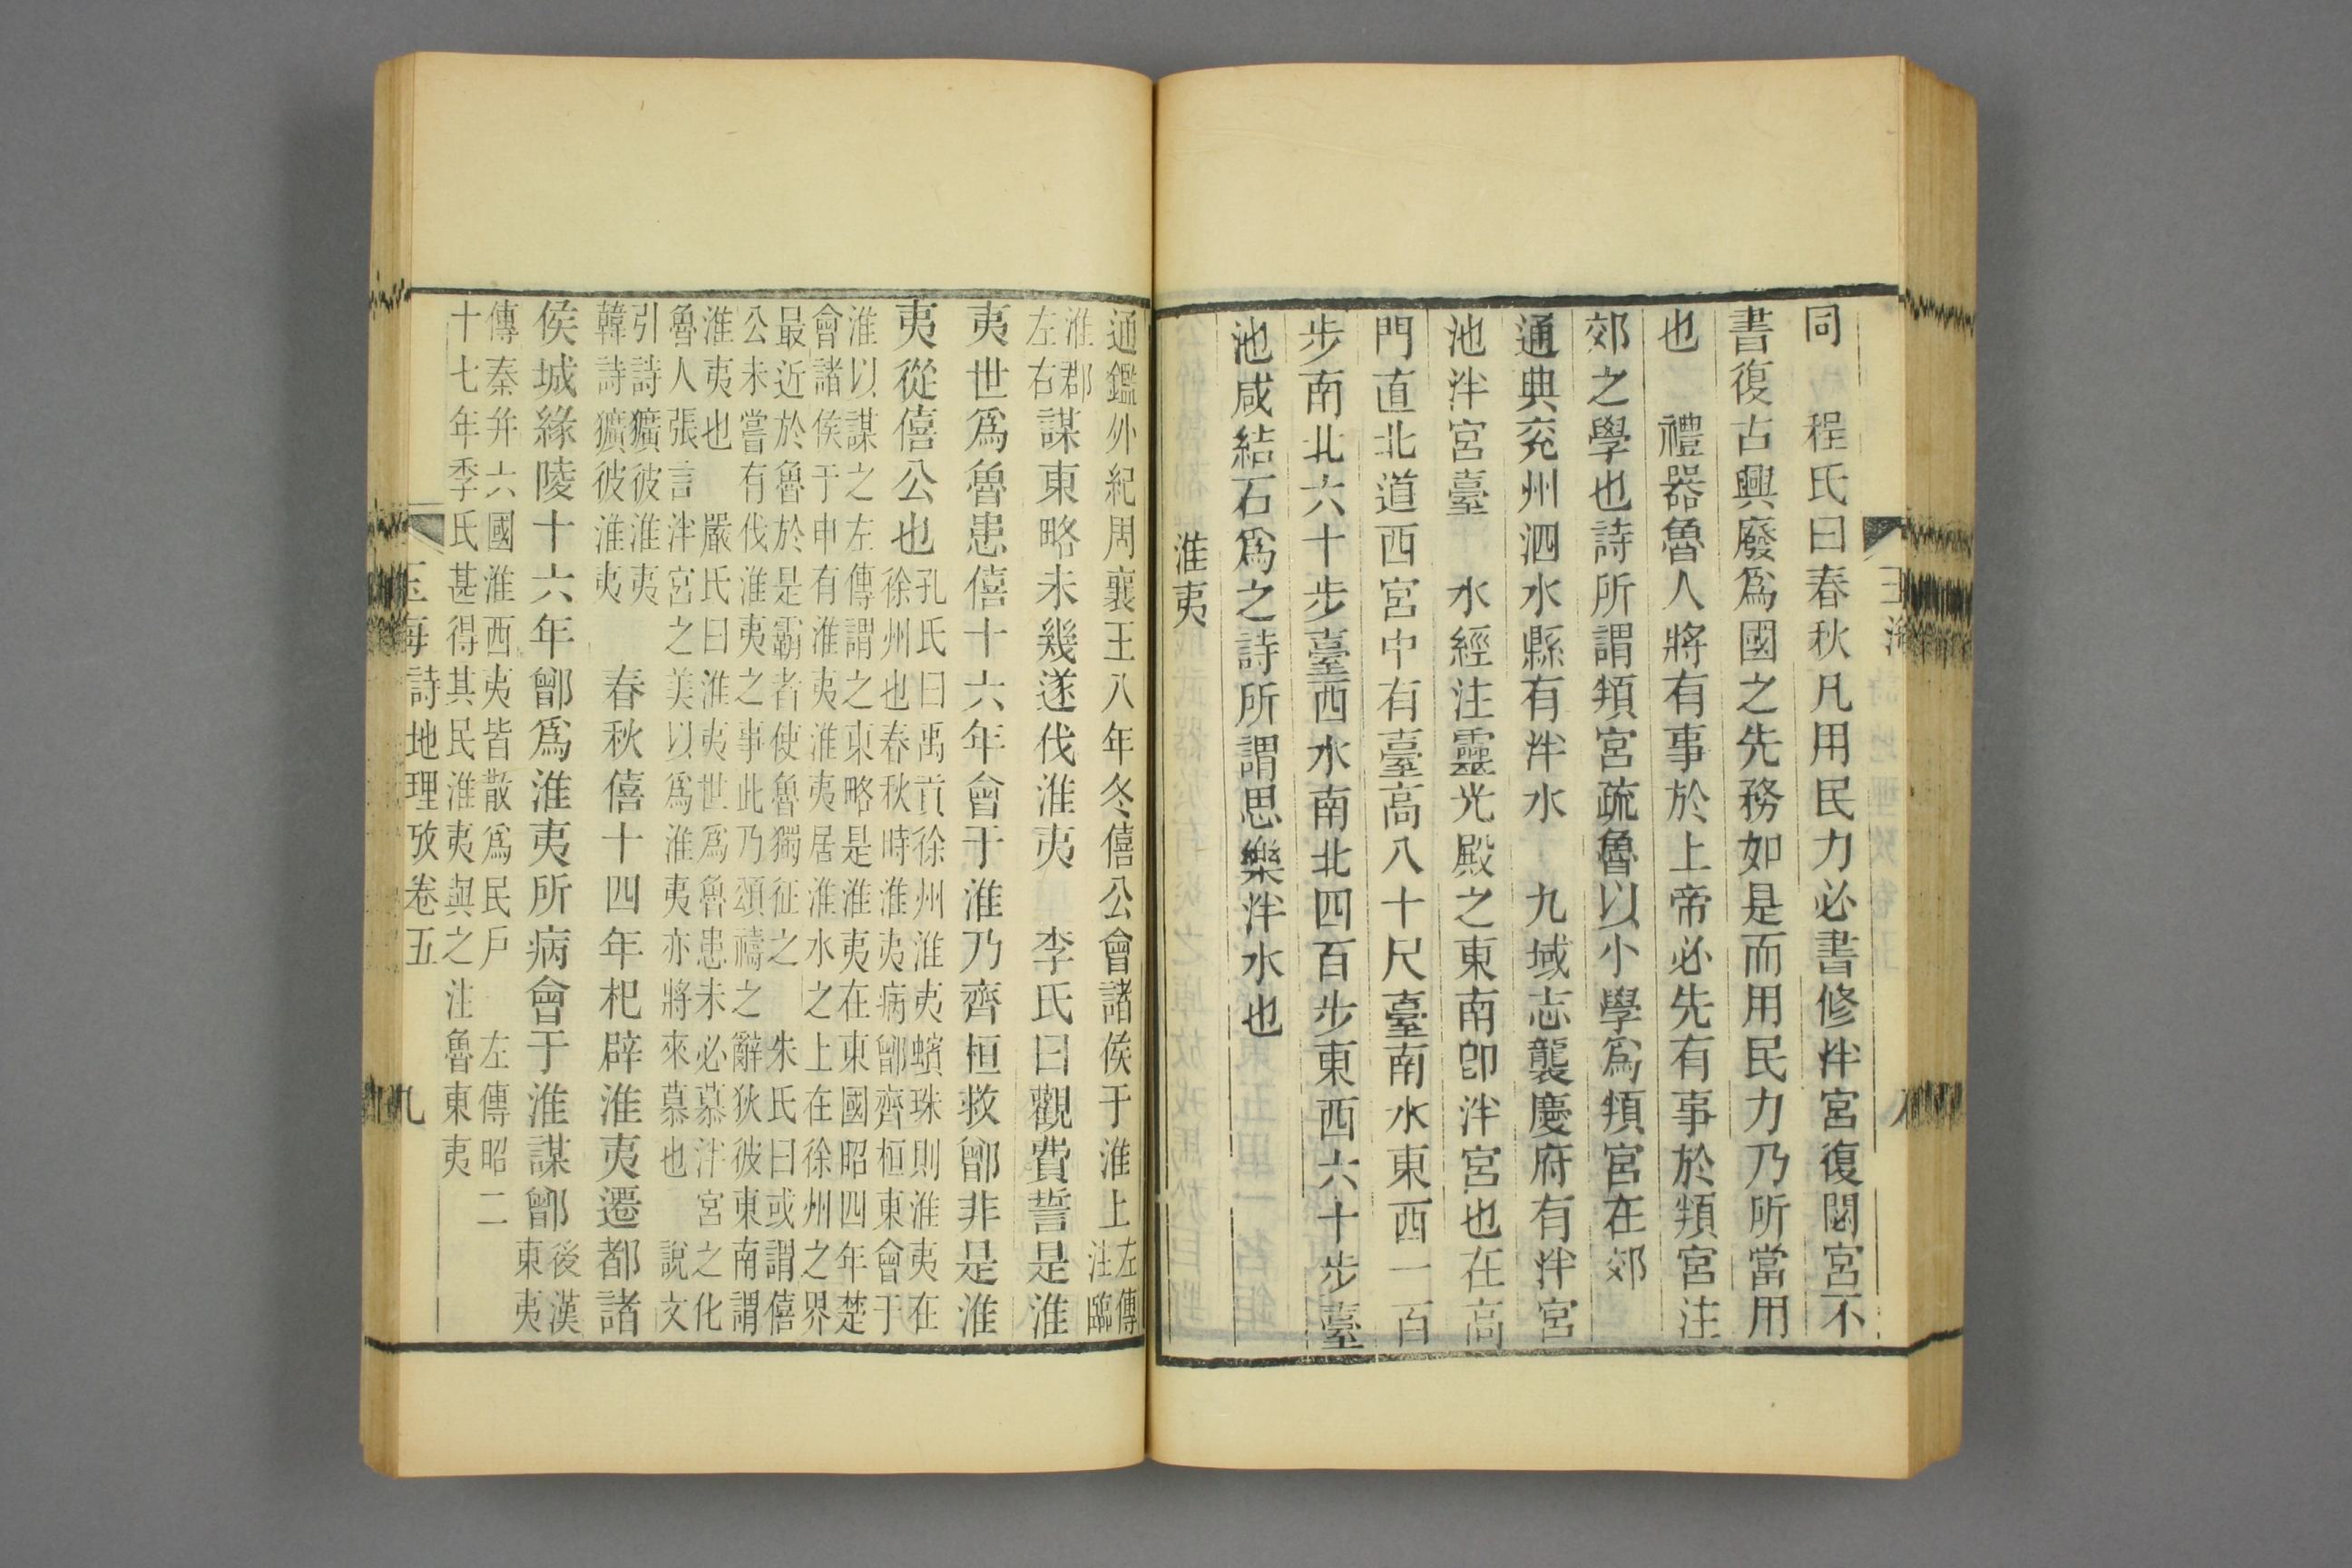 同　程氏曰春秋凡用民力必書修泮宮復閟宮不
書復古興廢爲國之先務如是而用民力乃所當用
也　禮器魯人將有事於上帝必先有事於頖宮注
郊之學也詩所謂頖宮疏魯以小學爲頖宮在郊
通典兖州泗水縣有泮水　九域志襲慶府有泮宮
池泮宮臺　水經注靈光殿之東南卽泮宮也在高
門直北道西宮中有臺高八十尺臺南水東西一百
步南北六十步臺西水南北四百步東西六十步臺
池咸結石爲之詩所謂思樂泮水也
淮夷
通鑑外紀周襄王八年冬僖公會諸侯于淮上左傳注臨
淮郡左右謀東略未幾遂伐淮夷　李氏曰觀費誓是淮
夷世爲魯患僖十六年會于淮乃齊桓救鄫非是淮
夷從僖公也孔氏曰禹貢徐州淮夷蠙珠則淮夷在
徐州也春秋時淮夷病鄫齊桓東會于
淮以謀之左傳謂之東略是淮夷在東國昭四年楚
會諸侯于申有淮夷淮夷居淮水之上在徐州之界
最近於魯於是霸者使魯獨征之　朱氏曰或謂僖
公未嘗有伐淮夷之事此乃頌禱之辭狄彼東南謂
淮夷也　嚴氏曰淮夷世爲魯患未必慕泮宮之化
魯人張言泮宮之美以爲淮夷亦將來慕也　說文
引詩獷彼淮夷
韓詩獷彼淮夷　春秋僖十四年杞辟淮夷遷都諸
侯城緣陵十六年鄫爲淮夷所病會于淮謀鄫後漢東夷
傳秦幷六國淮西夷皆散爲民戶　左傳昭二
十七年季氏甚得其民淮夷與之注魯東夷
玉海　詩地理攷卷五　九